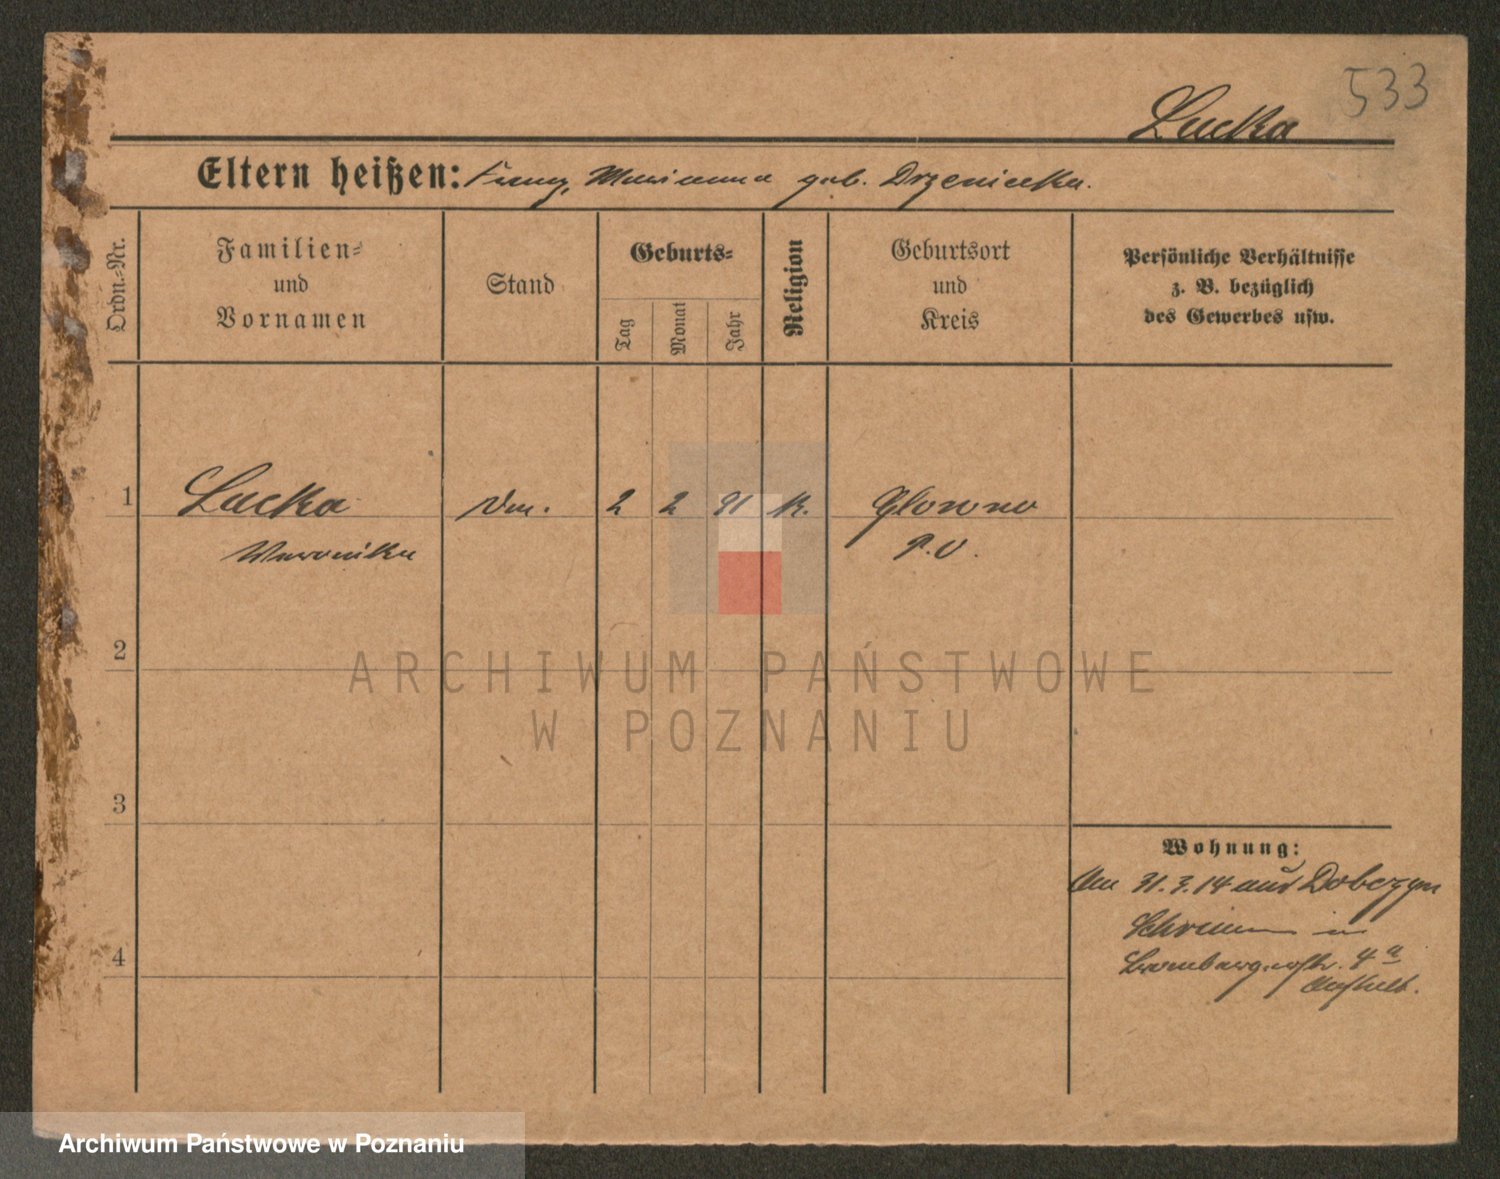 533
Lucka
Eltern heißen: Franz, Marianna geb. Drzeniecka.
Ordn.-Nr.
Familien-
und
Vornamen
Stand
Geburts-
Tag
Monat
Jahr
Religion
Geburtsort
und
Kreis
Persönliche Verhältnisse
z. B. bezüglich
des Gewerbes usw.
1
Lucka
Weronika
2 2 91 K.
Glowno
P.O.
2
3
4
Wohnung:
Am 31.3.14 aus Dobczyn
Schrimm in
Brombergerstr. 4a
ARCHIWUM PAŃSTWOWE
W POZNANIU
Archiwum Państwowe w Poznaniu